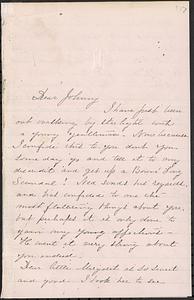 Dear Johnny
I have just been
out walking by starlight with
a young gentleman. Now because
I confide this to you don't you
some day go and tell it to my
discredit and get up a Bowen Long
Scandal. Fred sends his regards
and has confided to me the
most flattering things about you
but perhaps it is only done to
gain my young affections -
He wont it very thing about
you indeed.
Dear little Margaret is so sweet
and good. I took her to see